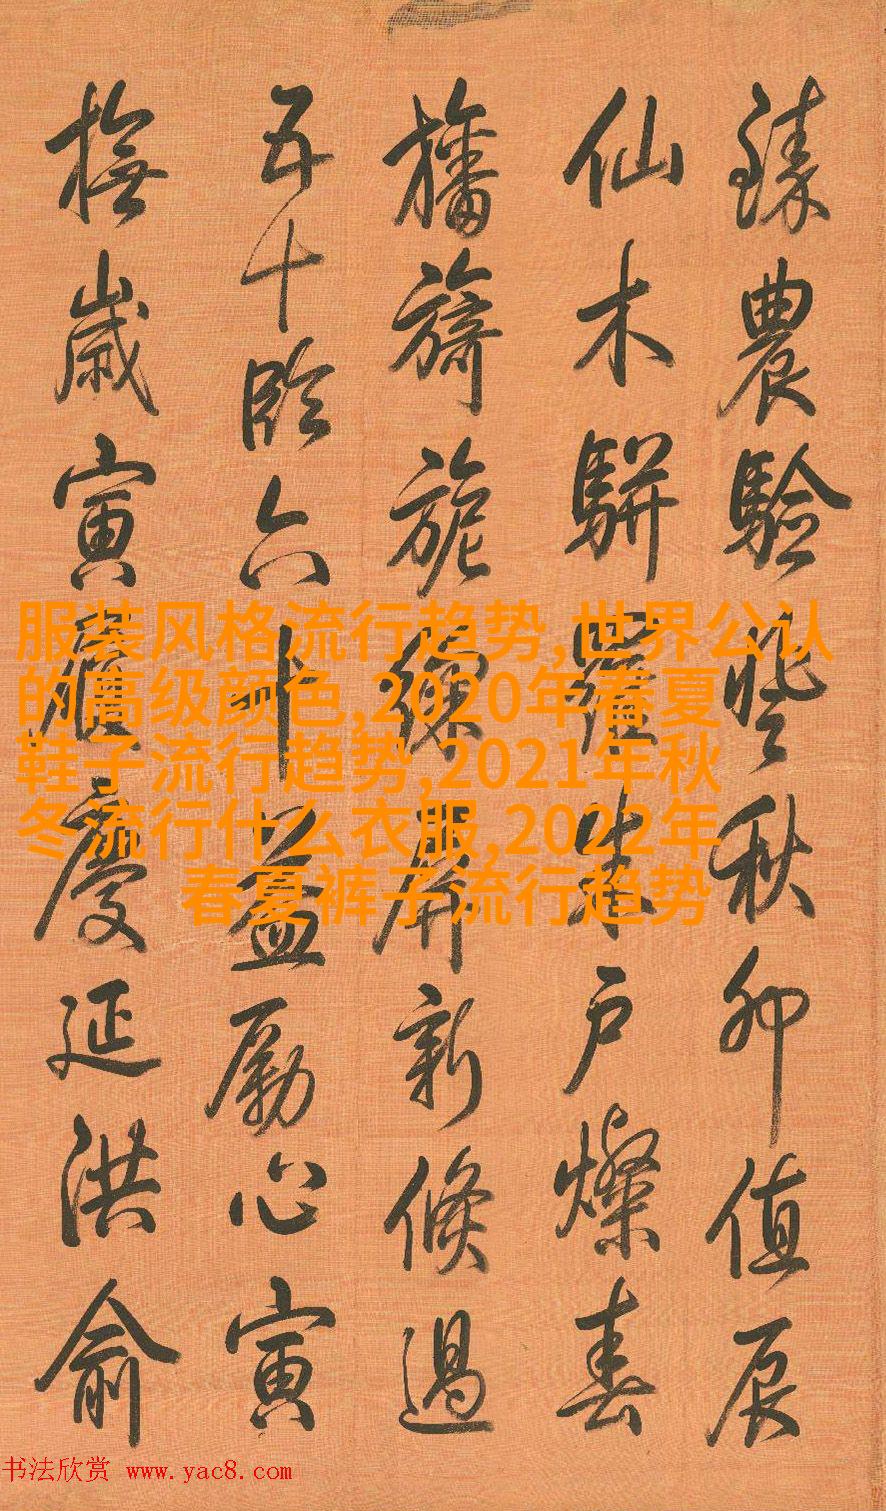 臻農驗秋卯值辰
仙木駢羅朱户燦春
旛旖旎綵屏新倏過
五十臨六十益勵心寅
撫歲寅慶延洪俞
服装风格流行趋势,世界公认
的高级颜色,2020年春夏
鞋子流行趋势,2021年秋
冬流行什么衣服,2022年
春夏裤子流行趋势
书法欣赏 www.yac8.com